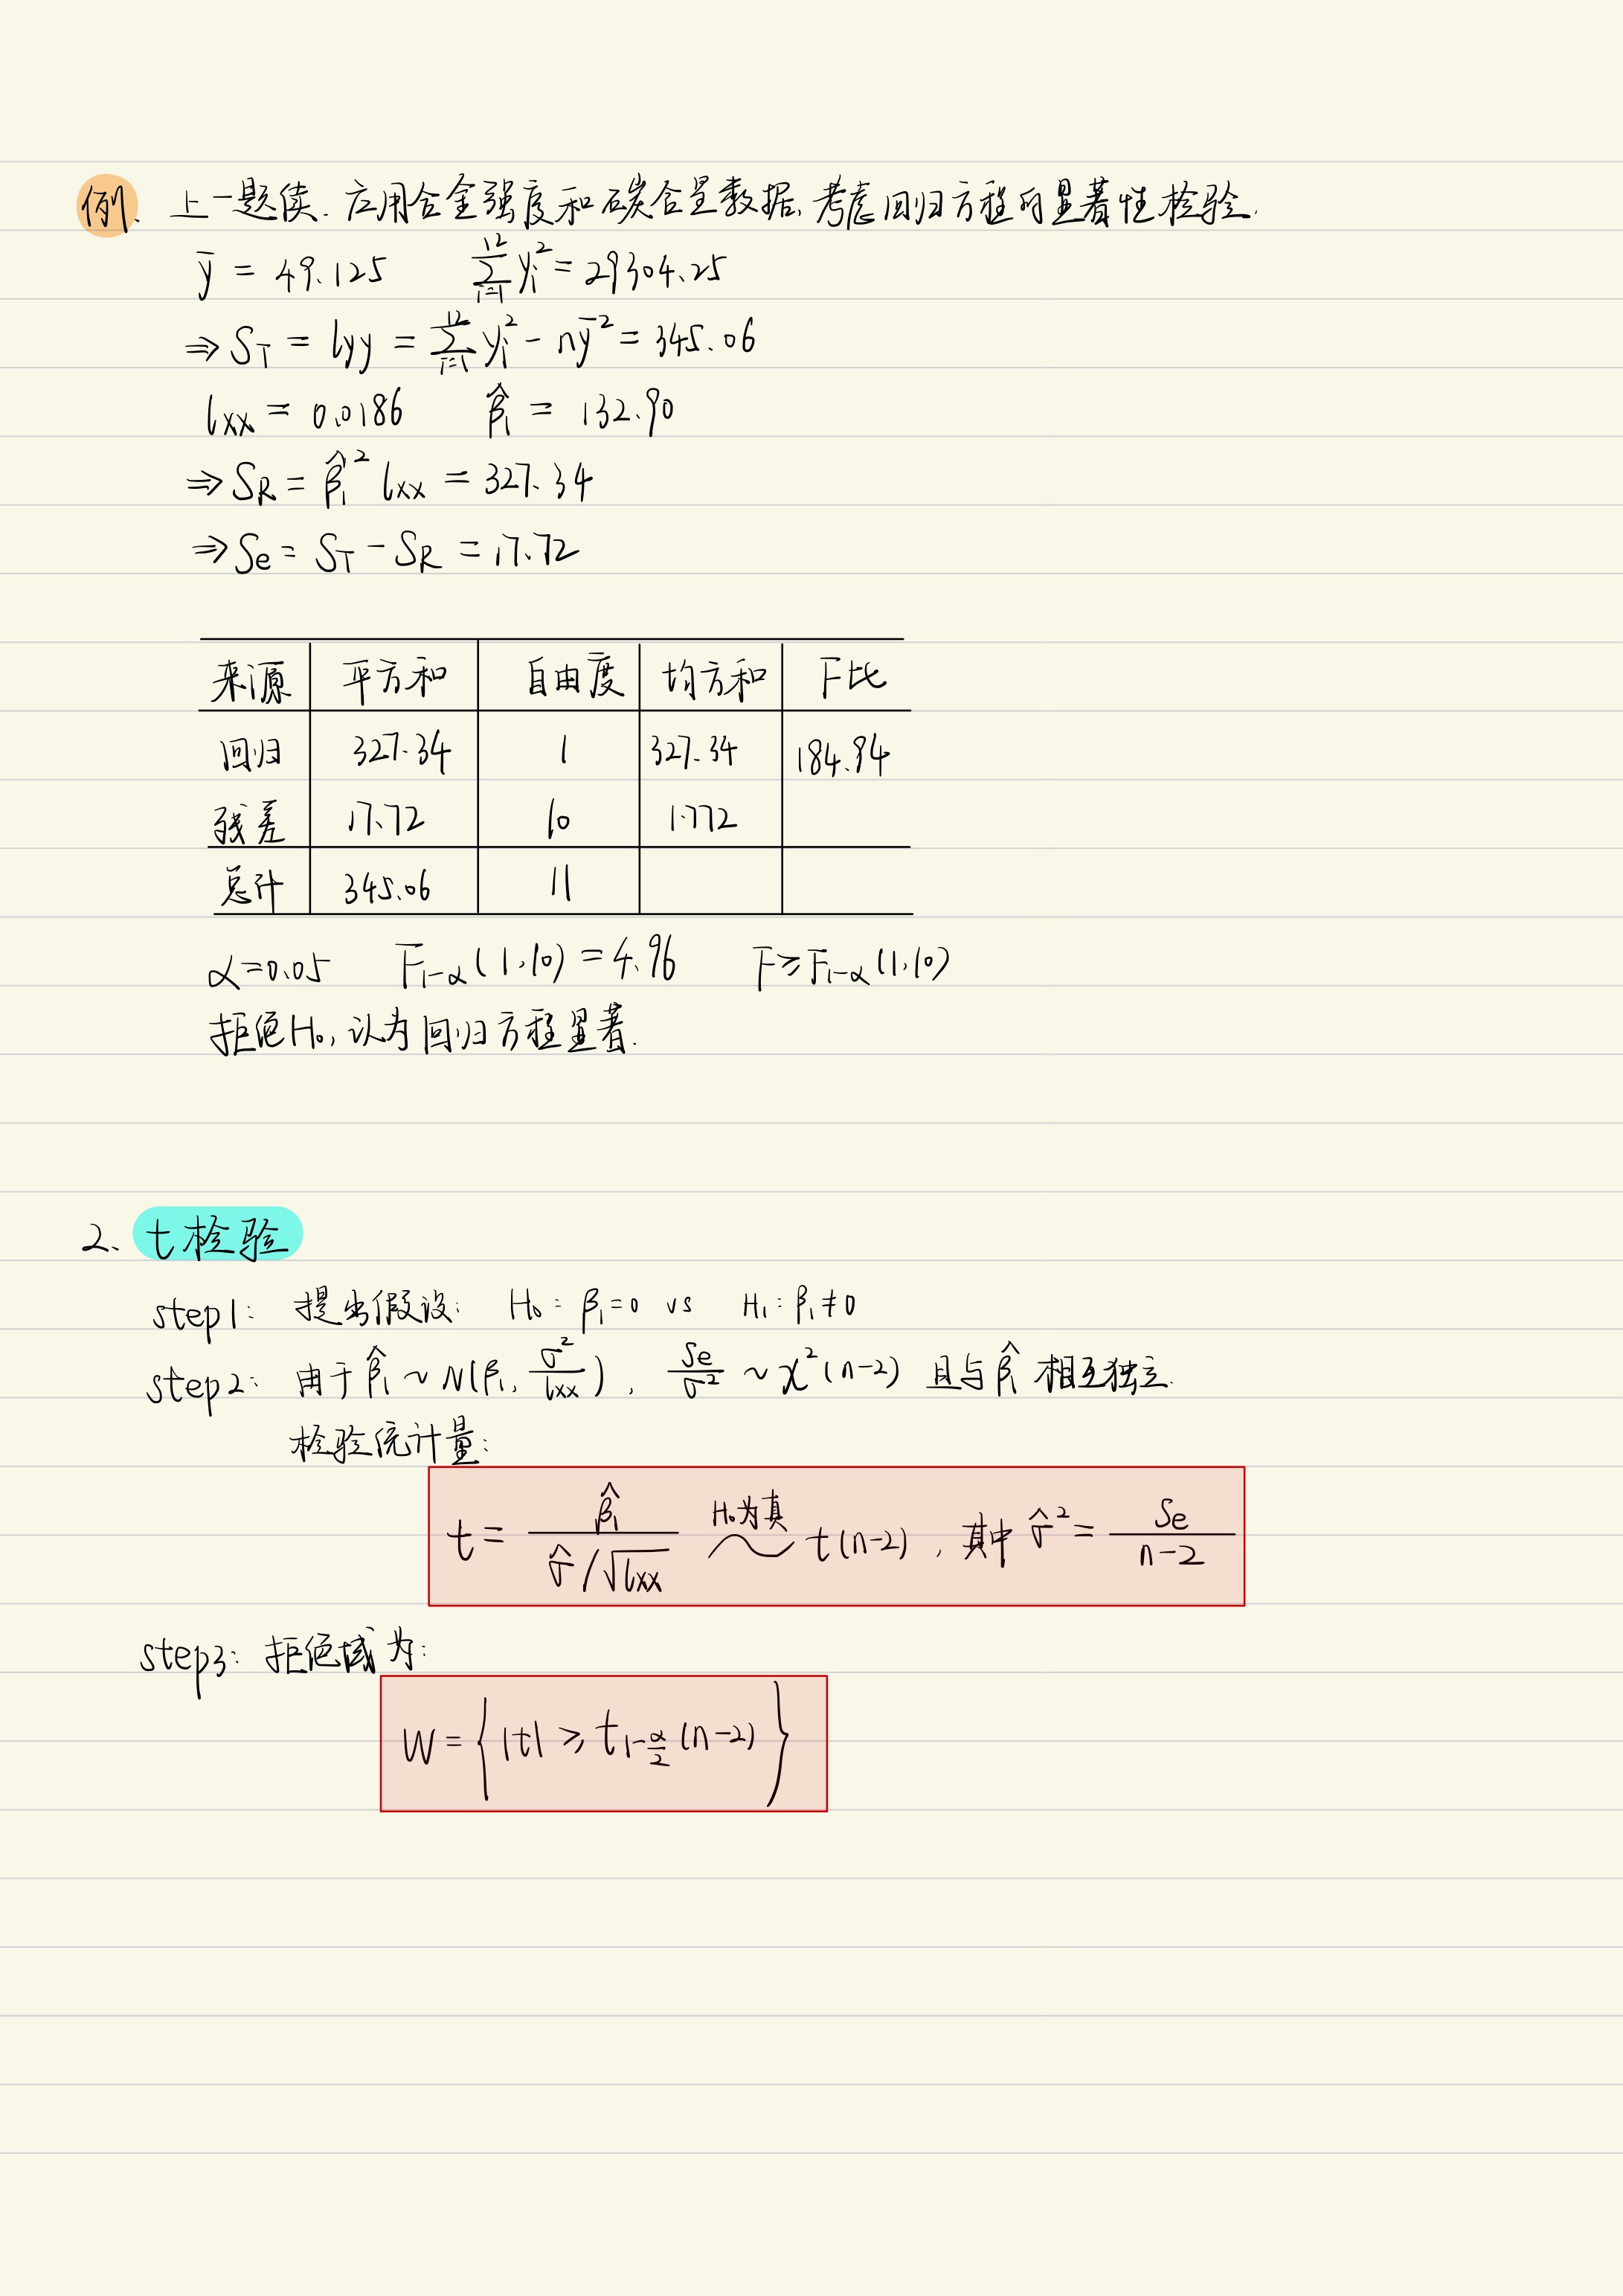 例. 上一题续. 应用合金强度和碳含量数据, 考虑回归方程的显著性检验.
ȳ = 49.125 ∑_{i=1}^{12} y_i² = 29304.25
⇒ S_T = l_yy = ∑_{i=1}^{12} y_i² - nȳ² = 345.06
l_xx = 0.0186 β̂₁ = 132.90
⇒ S_R = β̂₁² l_xx = 327.34
⇒ S_e = S_T - S_R = 17.72
来源 平方和 自由度 均方和 F比
回归 327.34 1 327.34 184.94
残差 17.72 10 1.772
总计 345.06 11
α=0.05 F_{1-α}(1,10) = 4.96 F ≥ F_{1-α}(1,10)
拒绝H₀, 认为回归方程显著.
2. t检验
step1: 提出假设: H₀: β₁=0 vs H₁: β₁≠0
step2: 由于 β̂₁ ~ N(β₁, σ²/l_xx), S_e/σ² ~ χ²(n-2) 且与 β̂₁ 相互独立.
检验统计量:
t = β̂₁/(σ̂/√l_xx) ~ (H₀为真) t(n-2), 其中 σ̂² = S_e/(n-2)
step3: 拒绝域为:
W = { |t| ≥ t_{1-α/2}(n-2) }